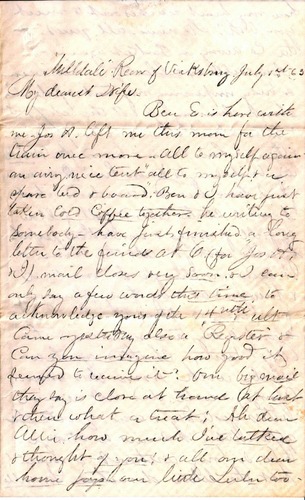 Milldale Rear of Vicksburg July 1st 63
My dearest Wife.
Ben E. is here with
me. Jos N. left me this morn for the
train once more - All to myself again
an airy nice tent all to myself & a
spare bed & board. Ben & I have just
taken Cold Coffee together - he writing to
somebody - have just finished a long
letter to the friends at (for Jos &
I) mail closes very soon & I can
only say a few words this time to
acknowledge yours of the 14th ult
Came yesterday also a "Register" &
Can you imagine how good it
seemed to receive it? Our big mail
they say is close at hand at last
& then what a treat! Ah dear
Allie how much I've talked
& thought of you; & all our dear
home joys our little Lulu too